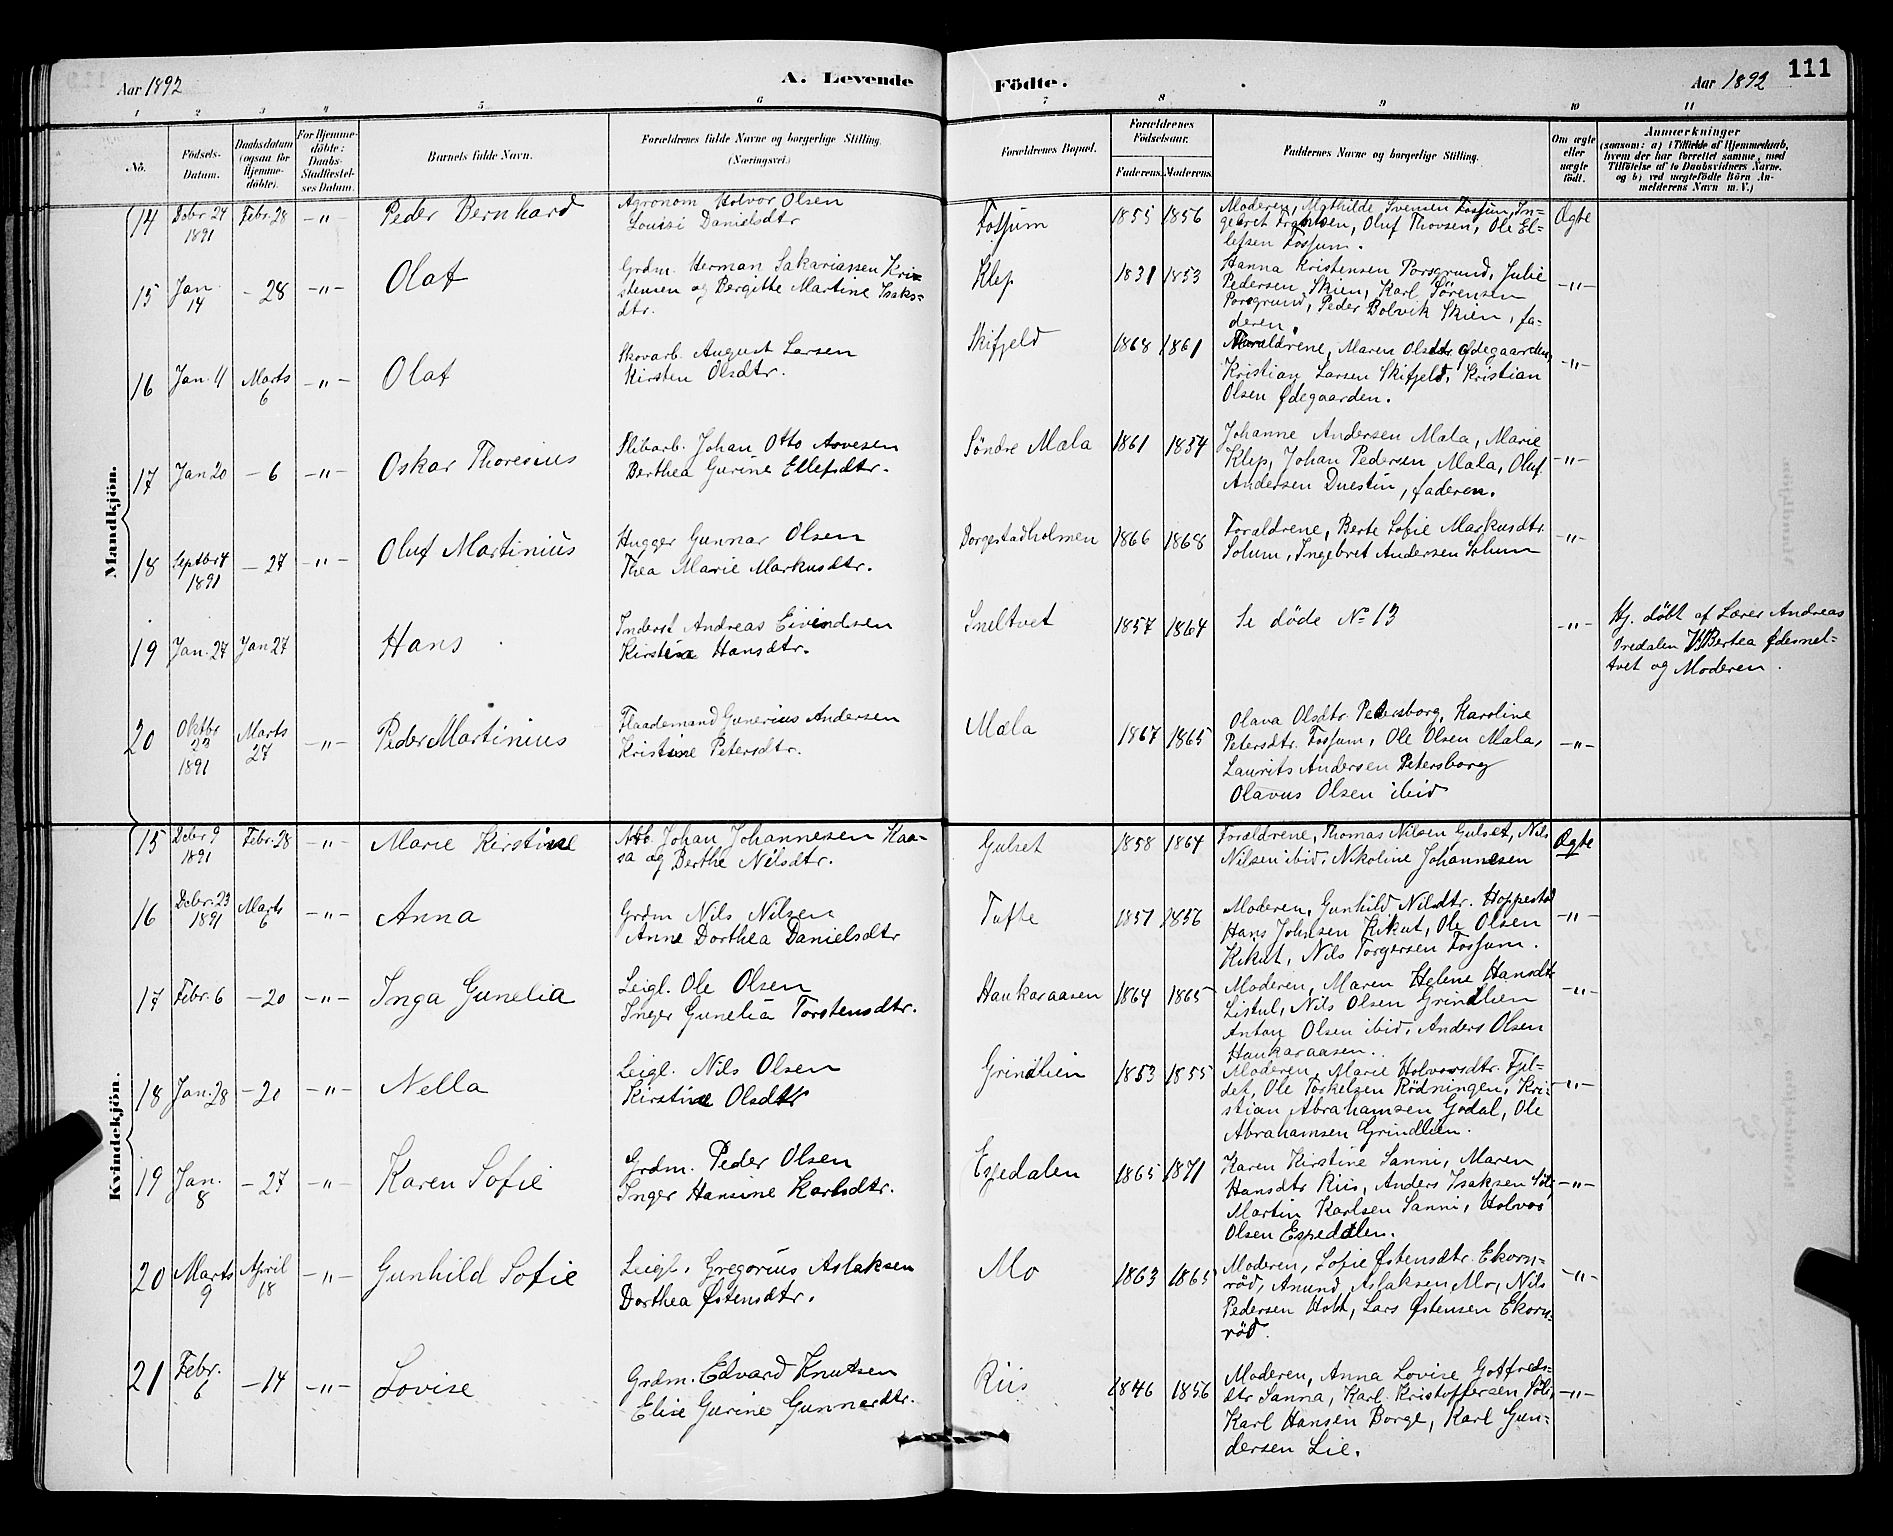 Aar 1892 A. Levende Födte. Aar 1892 111
1 2 3 4 5 6 7 8 9 10 11
No. Födsels-Datum. Daabsdatum (ogsaa for Hjemme-döbte). For Hjemme-döbte: Daabs-Stadfæstel-ses Datum. Barnets fulde Navn. Forældrenes fulde Navne og borgerlige Stilling. (Næringsvei.) Forældrenes Bopæl. Forældrenes Födselsaar. Faderens. Moderens. Faddernes Navne og borgerlige Stilling. Om ægte eller uægte födt. Anmærkninger
(saasom: a) i Tilfælde af Hjemmedaab, hvem der har forrettet samme, med Tilföielse af to Daabsvidners Navne, og b) ved uægtefödte Börn An-melderens Navn m. V.)
Mandkjön.
14 Debr 27 1891 Febr. 28 -"- Peder Bernhard
Agronom Holvor Olsen
Louise Danielsdtr
Fossum 1855 1856
Moderen, Mathilde Svensen Fossum, In-
gebret Frantsen, Oluf Thovsen, Ole El-
lefsen Fossum.
Ægte
15 Jan. 14 - 28 -"- Olaf
Grdm. Herman Sakariassen Kri-
stensen og Bergitte Martine Isaks-
dtr.
Klep 1831 1853
Hanna Kristensen Porsgrund, Julie
Pedersen Skien, Karl Sörensen
Porsgrund, Peder Bolvik Skien, fa-
deren.
-"-
16 Jan. 11 Marts 6 -"- Olaf
Skovarb. August Larsen
Kirsten Olsdtr.
Skifjeld 1868 1861
Forældrene, Maren Olsdtr Ödegaarden,
Kristian Larsen Skifjeld, Kristian
Olsen Ödegaarden.
-"-
17 Jan 20 - 6 -"- Oskar Thoresius
Slibarb. Johan Otto Aavesen
Berthea Gurine Ellefsdtr.
Söndre Mæla 1861 1854
Johanne Andersen Mæla, Marie
Klep, Johan Pedersen Mæla, Oluf
Andersen Duestin, faderen.
-"-
18 Septbr 4 1891 - 27 -"- Oluf Martinius
Hugger Gunnar Olsen
Thea Marie Markusdtr.
Borgestadholmen 1866 1868
Forældrene, Berte Sofie Markusdtr.
Solum, Ingebret Andersen Solum
-"-
19 Jan. 27 Jan 27 Hans
Inderst Andreas Eivindsen
Kirstine Hansdtr.
Sneltvet 1857 1864
Se döde No 13
-"-
Hj. döbt af Lærer Andreas
Bredalen Berthea Ödesnel-
tvet og Moderen.
20 Oktbr 23 1891 Marts 27 -"- Peder Martinius
Flaademand Gunerius Andersen
Kristine Petersdtr.
Mæla 1867 1865
Olava Olsdtr. Petersborg, Karoline
Petersdtr. Fossum, Ole Olsen Mæla,
Laurits Andersen Petersborg
Olavus Olsen ibid
-"-
Kvindekjön.
15 Debr 9 1891 Febr. 28 -"- Marie Kirstine
Arb. Johan Johannesen Kaa-
sa og Berthe Nilsdtr.
Gulset 1858 1864
Forældrene, Thomas Nilsen Gulset, Nils
Nilsen ibid, Nikoline Johannesen
Ægte
16 Debr. 23 1891 Marts 6 -"- Anna
Grdm Nils Nilsen
Anne Dorthea Danielsdtr
Tufte 1851 1856
Moderen, Gunhild Nilsdtr. Hoppestad
Hans Johnsen Kikut, Ole Olsen
Kikut, Nils Torgersen Fossum.
-"-
17 Febr. 6 - 20 -"- Inga Gunelia
Leigl. Ole Olsen
Inger Gunelia Torstensdtr.
Haukaraasen 1864 1865
Moderen, Maren Helene Hansdtr
Listul, Nils Olsen Grindlien
Anton Olsen ibid, Anders Olsen
Haukaraasen.
-"-
18 Jan. 28 - 20 -"- Nella
Leigl. Nils Olsen
Kirstine Olsdtr
Grindlien 1853 1855
Moderen, Marie Holvorsdtr. Fjel-
det, Ole Torkelsen Rödningen, Kri-
stian Abrahamsen Godal, Ole
Abrahamsen Grindlien.
-"-
19 Jan. 8 - 27 -"- Karen Sofie
Grdm. Peder Olsen
Inger Hansine Karlsdtr.
Espedalen 1865 1871
Karen Kirstine Sanni, Maren
Hansdtr Riis, Anders Isaksen
Martin Karlsen Sanni, Holvor
Olsen Espedalen.
-"-
20 Marts 9 April 18 -"- Gunhild Sofie
Leigl. Gregorius Aslaksen
Dorthea Östensdtr.
Mo 1863 1865
Moderen, Sofie Östensdtr. Ekorn-
röd, Anund Aslaksen Mo, Nils
Pedersen Holt, Lars Östensen Ekorn-
röd.
-"-
21 Febr. 6 - 14 -"- Lovise
Grdm. Edvard Knutsen
Elise Gurine Gunnardtr.
Riis 1846 1856
Moderen, Anna Lovise Gotfreds-
dtr Sanna, Karl Kristoffersen
Karl Hansen Borge, Karl Gun-
dersen Lie.
-"-